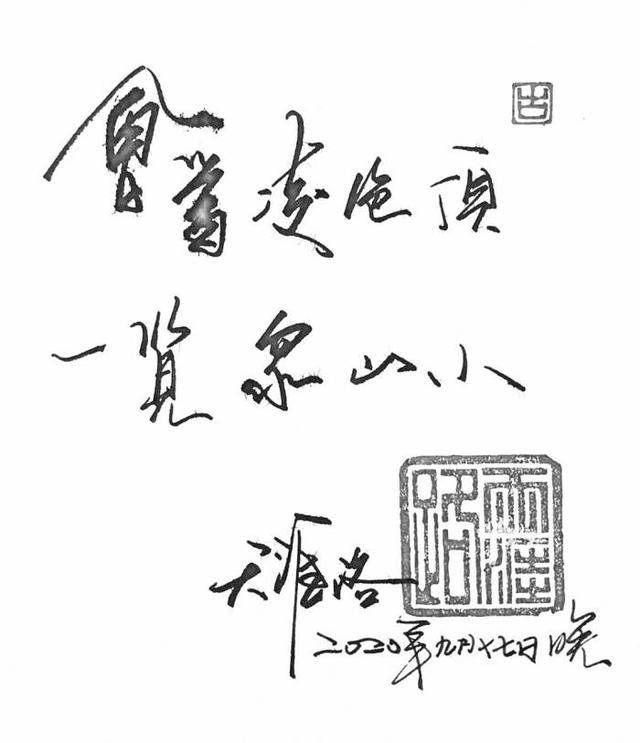 吉
會當凌絕頂
一覽眾山小
天涯路
天涯路
2020年九月十七日晚